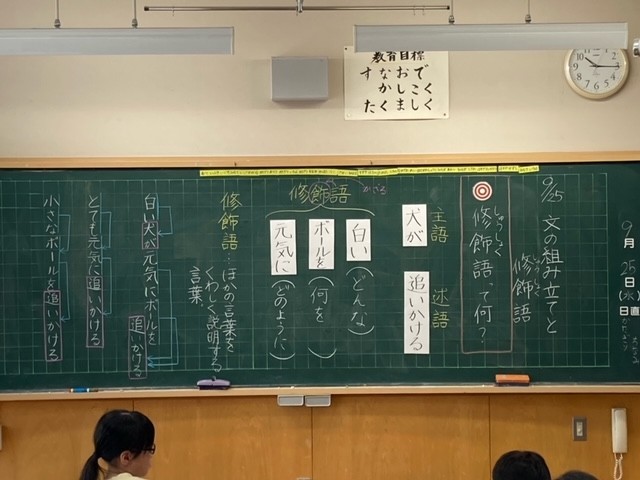 教育目標
すなおで
かしこく
たくましく
9月
25日
(水)
日直
9/25 文の組み立てと
修飾語
しゅうしょく
修飾語って何?
しゅうしょく
主語 述語
犬が 追いかける
修飾語
かざる
白い(どんな)
ボールを(何を)
元気に(どのように)
修飾語…ほかの言葉を
くわしく説明する
言葉
白い犬が元気にボールを
追いかける
とても元気に追いかける
小さなボールを追いかける